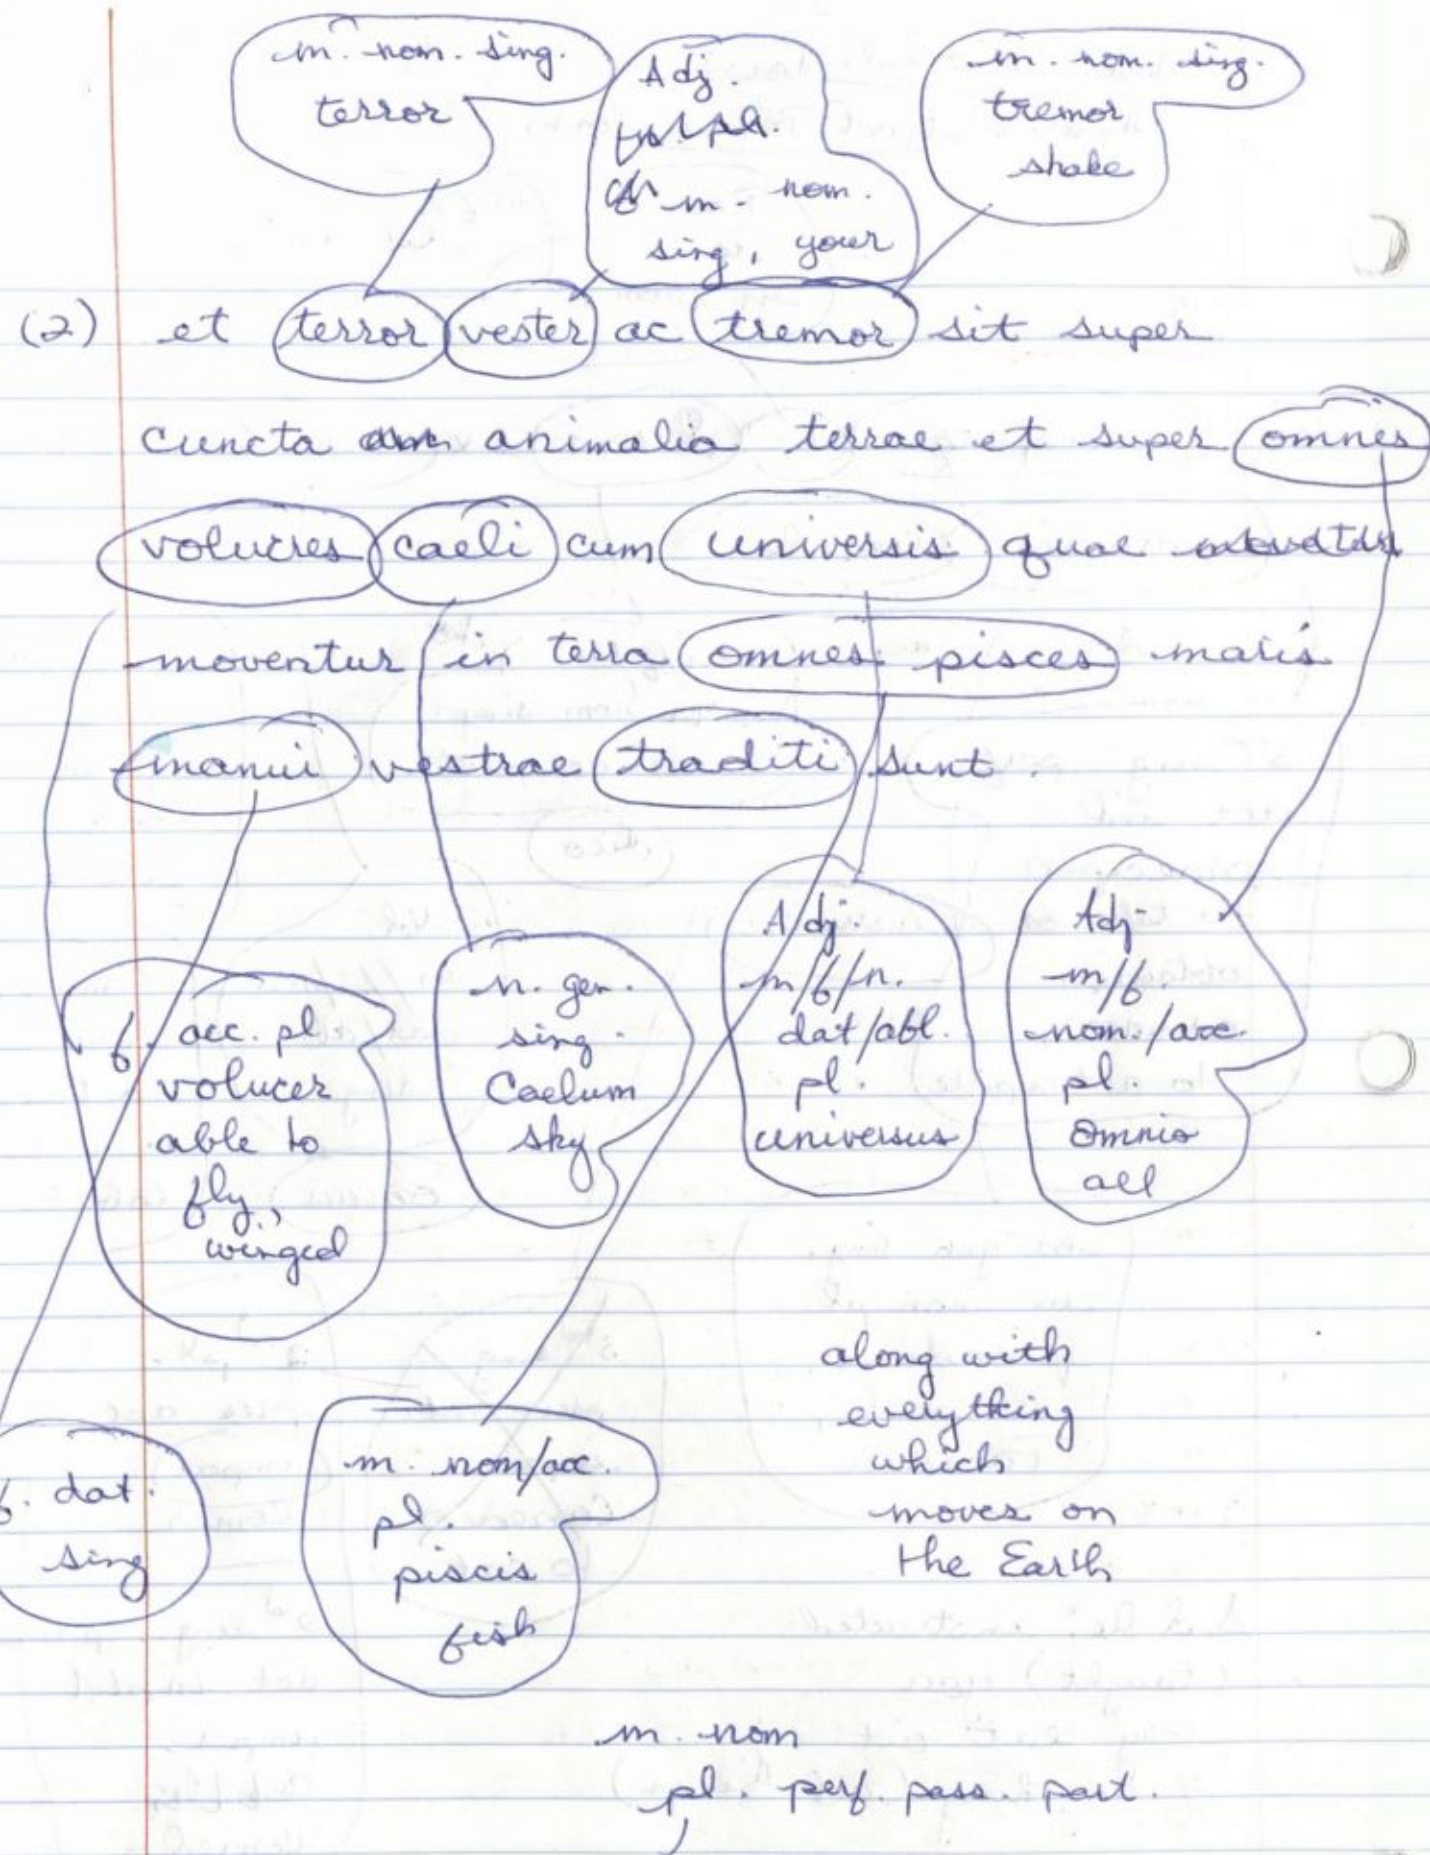 m. nom. sing.
terror
Adj.
m. nom.
sing, your
m. nom. sing.
tremor
shake
(2) et terror vester ac tremor sit super
cuncta animalia terrae et super omnes
volucres caeli cum universis quae
moventur in terra omnes pisces maris
manui vestrae traditi sunt.
f. acc. pl
volucer
able to
fly,
winged
n. gen.
sing.
Caelum
sky
Adj.
m/f/n.
dat/abl.
pl.
universus
Adj
m/f.
nom./acc.
pl.
Omnis
all
f. dat.
sing
m. nom/acc.
pl.
piscis
fish
along with
everything
which
moves on
the Earth
m. nom
pl. perf. pass. part.